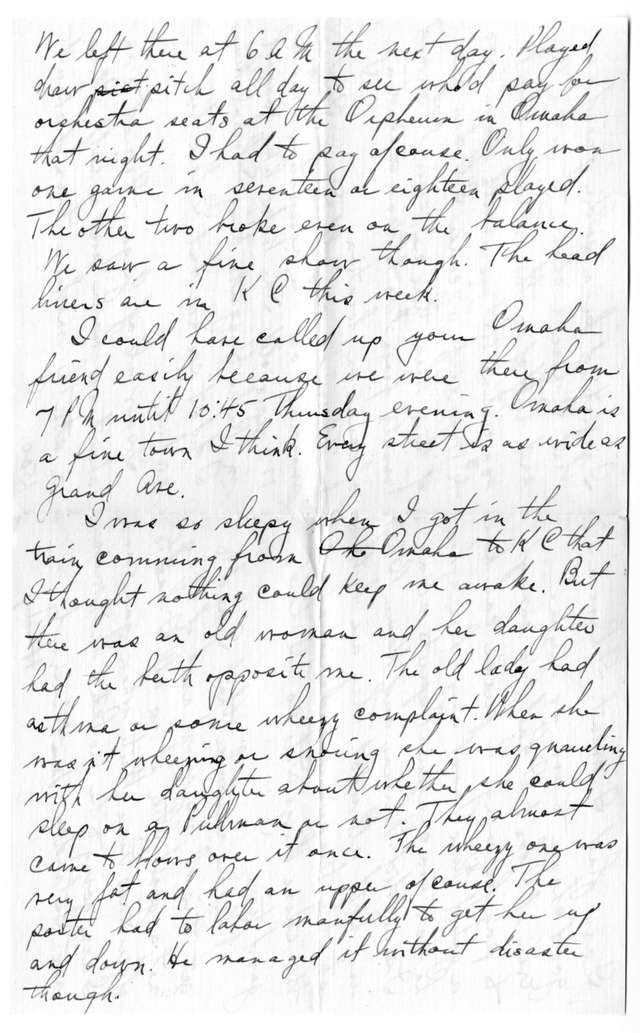 We left there at 6 A M the next day. Played
draw pitch all day to see who'd pay for
orchestra seats at the Orpheum in Omaha
that night. I had to pay ofcouse. Only won
one game in seventeen or eighteen played.
The other two broke even on the balance.
We saw a fine show though. The head
liners are in K C this week.
I could have called up your Omaha
friend easily because we were there from
7 PM until 10:45 Thursday evening. Omaha is
a fine town I think. Every street is as wide as
Grand Ave.
I was so sleepy when I got in the
train comming from Omaha to K C that
I thought nothing could keep me awake. But
there was an old woman and her daughter
had the berth opposite me. The old lady had
asthma or some wheezy complaint. When she
wasn't wheezing or snoring she was quarreling
with her daughter about whether she could
sleep on a Pullman or not. They almost
came to blows over it once. The wheezy one was
very fat and had an upper ofcouse. The
porter had to labor manfully to get her up
and down. He managed it without disaster
though.